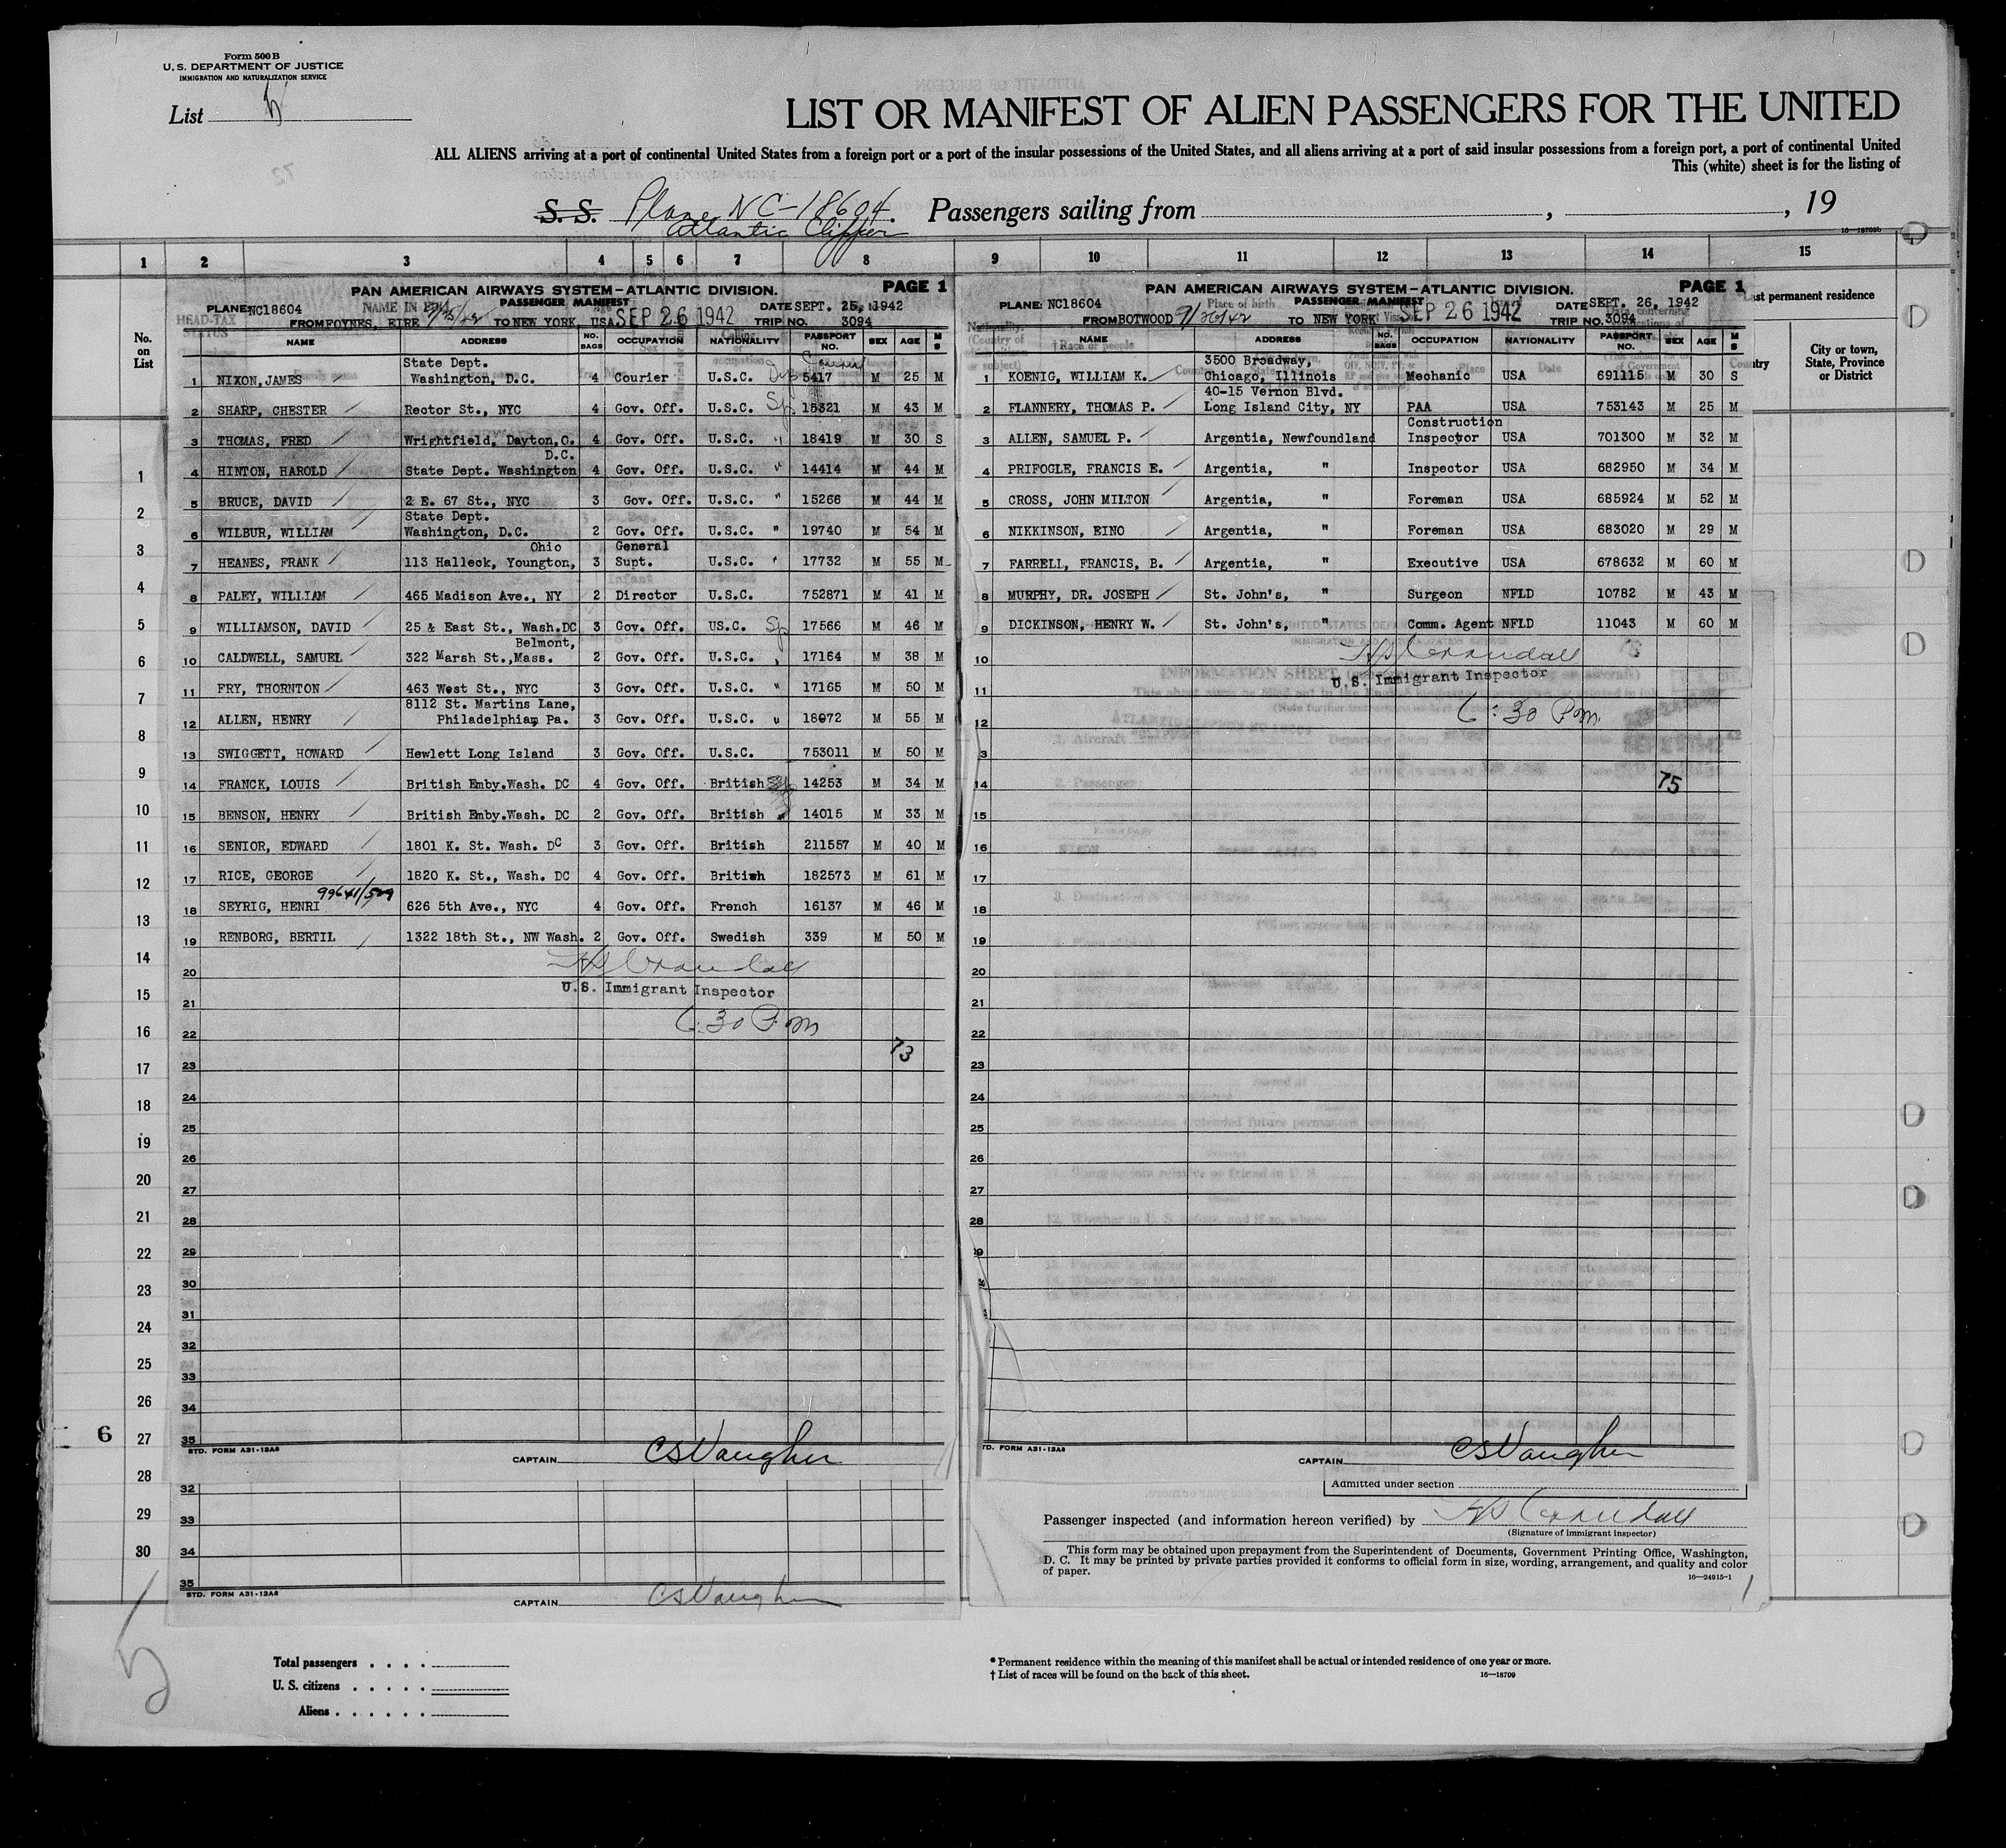 Form 500 B
U. S. DEPARTMENT OF JUSTICE
IMMIGRATION AND NATURALIZATION SERVICE
List
LIST OR MANIFEST OF ALIEN PASSENGERS FOR THE UNITED
ALL ALIENS arriving at a port of continental United States from a foreign port or a port of the insular possessions of the United States, and all aliens arriving at a port of said insular possessions from a foreign port, a port of continental United
This (white) sheet is for the listing of
S. S. Plane NC-18604. Passengers sailing from , , 19
Atlantic Clipper
16—18709b
1 2 3 4 5 6 7 8 9 10 11 12 13 14 15
PAN AMERICAN AIRWAYS SYSTEM—ATLANTIC DIVISION. PAGE 1
PLANE: NC18604 PASSENGER MANIFEST DATE SEPT. 25, 1942
FROM FOYNES, EIRE 9/25/42 TO NEW YORK, USA SEP 26 1942 TRIP NO. 3094
NAME ADDRESS NO. BAGS OCCUPATION NATIONALITY PASSPORT NO. SEX AGE M S
1 NIXON,JAMES State Dept. Washington, D.C. 4 Courier U.S.C. 5417 M 25 M
2 SHARP, CHESTER Rector St., NYC 4 Gov. Off. U.S.C. Sp 15321 M 43 M
3 THOMAS, FRED Wrightfield, Dayton,O. 4 Gov. Off. U.S.C. " 18419 M 30 S
4 HINTON, HAROLD State Dept. Washington D.C. 4 Gov. Off. U.S.C. " 14414 M 44 M
5 BRUCE, DAVID 2 E. 67 St., NYC 3 Gov. Off. U.S.C. " 15266 M 44 M
6 WILBUR, WILLIAM State Dept. Washington, D.C. 2 Gov. Off. U.S.C. " 19740 M 54 M
7 HEANES, FRANK 113 Halleck, Youngton, Ohio 3 General Supt. U.S.C. " 17732 M 55 M
8 PALEY, WILLIAM 465 Madison Ave., NY 2 Director U.S.C. 752871 M 41 M
9 WILLIAMSON, DAVID 25 & East St., Wash.DC 3 Gov. Off. US.C. Sp 17566 M 46 M
10 CALDWELL, SAMUEL 322 Marsh St.,Mass. Belmont, 2 Gov. Off. U.S.C. " 17164 M 38 M
11 FRY, THORNTON 463 West St., NYC 3 Gov. Off. U.S.C. " 17165 M 50 M
12 ALLEN, HENRY 8112 St. Martins Lane, Philadelphiam Pa. 3 Gov. Off. U.S.C. " 18072 M 55 M
13 SWIGGETT, HOWARD Hewlett Long Island 3 Gov. Off. U.S.C. 753011 M 50 M
14 FRANCK, LOUIS British Emby.Wash. DC 4 Gov. Off. British 14253 M 34 M
15 BENSON, HENRY British Emby.Wash. DC 2 Gov. Off. British 14015 M 33 M
16 SENIOR, EDWARD 1801 K. St. Wash. DC 3 Gov. Off. British 211557 M 40 M
17 RICE, GEORGE 1820 K. St., Wash. DC 4 Gov. Off. British 182573 M 61 M
18 SEYRIG, HENRI 626 5th Ave., NYC 4 Gov. Off. French 16137 M 46 M
19 RENBORG, BERTIL 1322 18th St., NW Wash. 2 Gov. Off. Swedish 339 M 50 M
20
HS Crandall
U.S. Immigrant Inspector
21
6:30 P.m
22
73
23
24
25
26
27
28
29
30
31
32
33
34
35
STD. FORM A31-13A6
CAPTAIN CSVaughn
32
33
34
35
STD. FORM A31-13A6
CAPTAIN CSVaughn
PAN AMERICAN AIRWAYS SYSTEM—ATLANTIC DIVISION. PAGE 1
PLANE: NC18604 PASSENGER MANIFEST DATE SEPT. 26, 1942
FROM BOTWOOD 9/26/42 TO NEW YORK SEP 26 1942 TRIP NO. 3094
NAME ADDRESS NO. BAGS OCCUPATION NATIONALITY PASSPORT NO. SEX AGE M S
1 KOENIG, WILLIAM K. 3500 Broadway, Chicago, Illinois Mechanic USA 691115 M 30 S
2 FLANNERY, THOMAS P. 40-15 Vernon Blvd. Long Island City, NY PAA USA 753143 M 25 M
3 ALLEN, SAMUEL P. Argentia, Newfoundland Construction Inspector USA 701300 M 32 M
4 PRIFOGLE, FRANCIS E. Argentia, " Inspector USA 682950 M 34 M
5 CROSS, JOHN MILTON Argentia, " Foreman USA 685924 M 52 M
6 NIKKINSON, EINO Argentia, " Foreman USA 683020 M 29 M
7 FARRELL, FRANCIS, B. Argentia, " Executive USA 678632 M 60 M
8 MURPHY, DR. JOSEPH St. John's, " Surgeon NFLD 10782 M 43 M
9 DICKINSON, HENRY W. St. John's, " Comm. Agent NFLD 11043 M 60 M
10
HS Crandall
11
U.S. Immigrant Inspector
12
6:30 P.m.
3
14
75
15
16
17
18
19
20
21
22
23
24
25
26
27
28
29
31
32
33
34
35
TD. FORM A31-13A6
CAPTAIN CSVaughn
Admitted under section
Passenger inspected (and information hereon verified) by HS Crandall
(Signature of immigrant inspector)
This form may be obtained upon prepayment from the Superintendent of Documents, Government Printing Office, Washington,
D. C. It may be printed by private parties provided it conforms to official form in size, wording, arrangement, and quality and color
of paper.
16—24915-1
ast permanent residence
ntry
City or town, State, Province or District
No. on List
1
2
3
4
5
6
7
8
9
10
11
12
13
14
15
16
17
18
19
20
21
22
23
24
25
26
6 27
28
29
30
5
Total passengers
U. S. citizens
Aliens
* Permanent residence within the meaning of this manifest shall be actual or intended residence of one year or more.
† List of races will be found on the back of this sheet.
16—18709